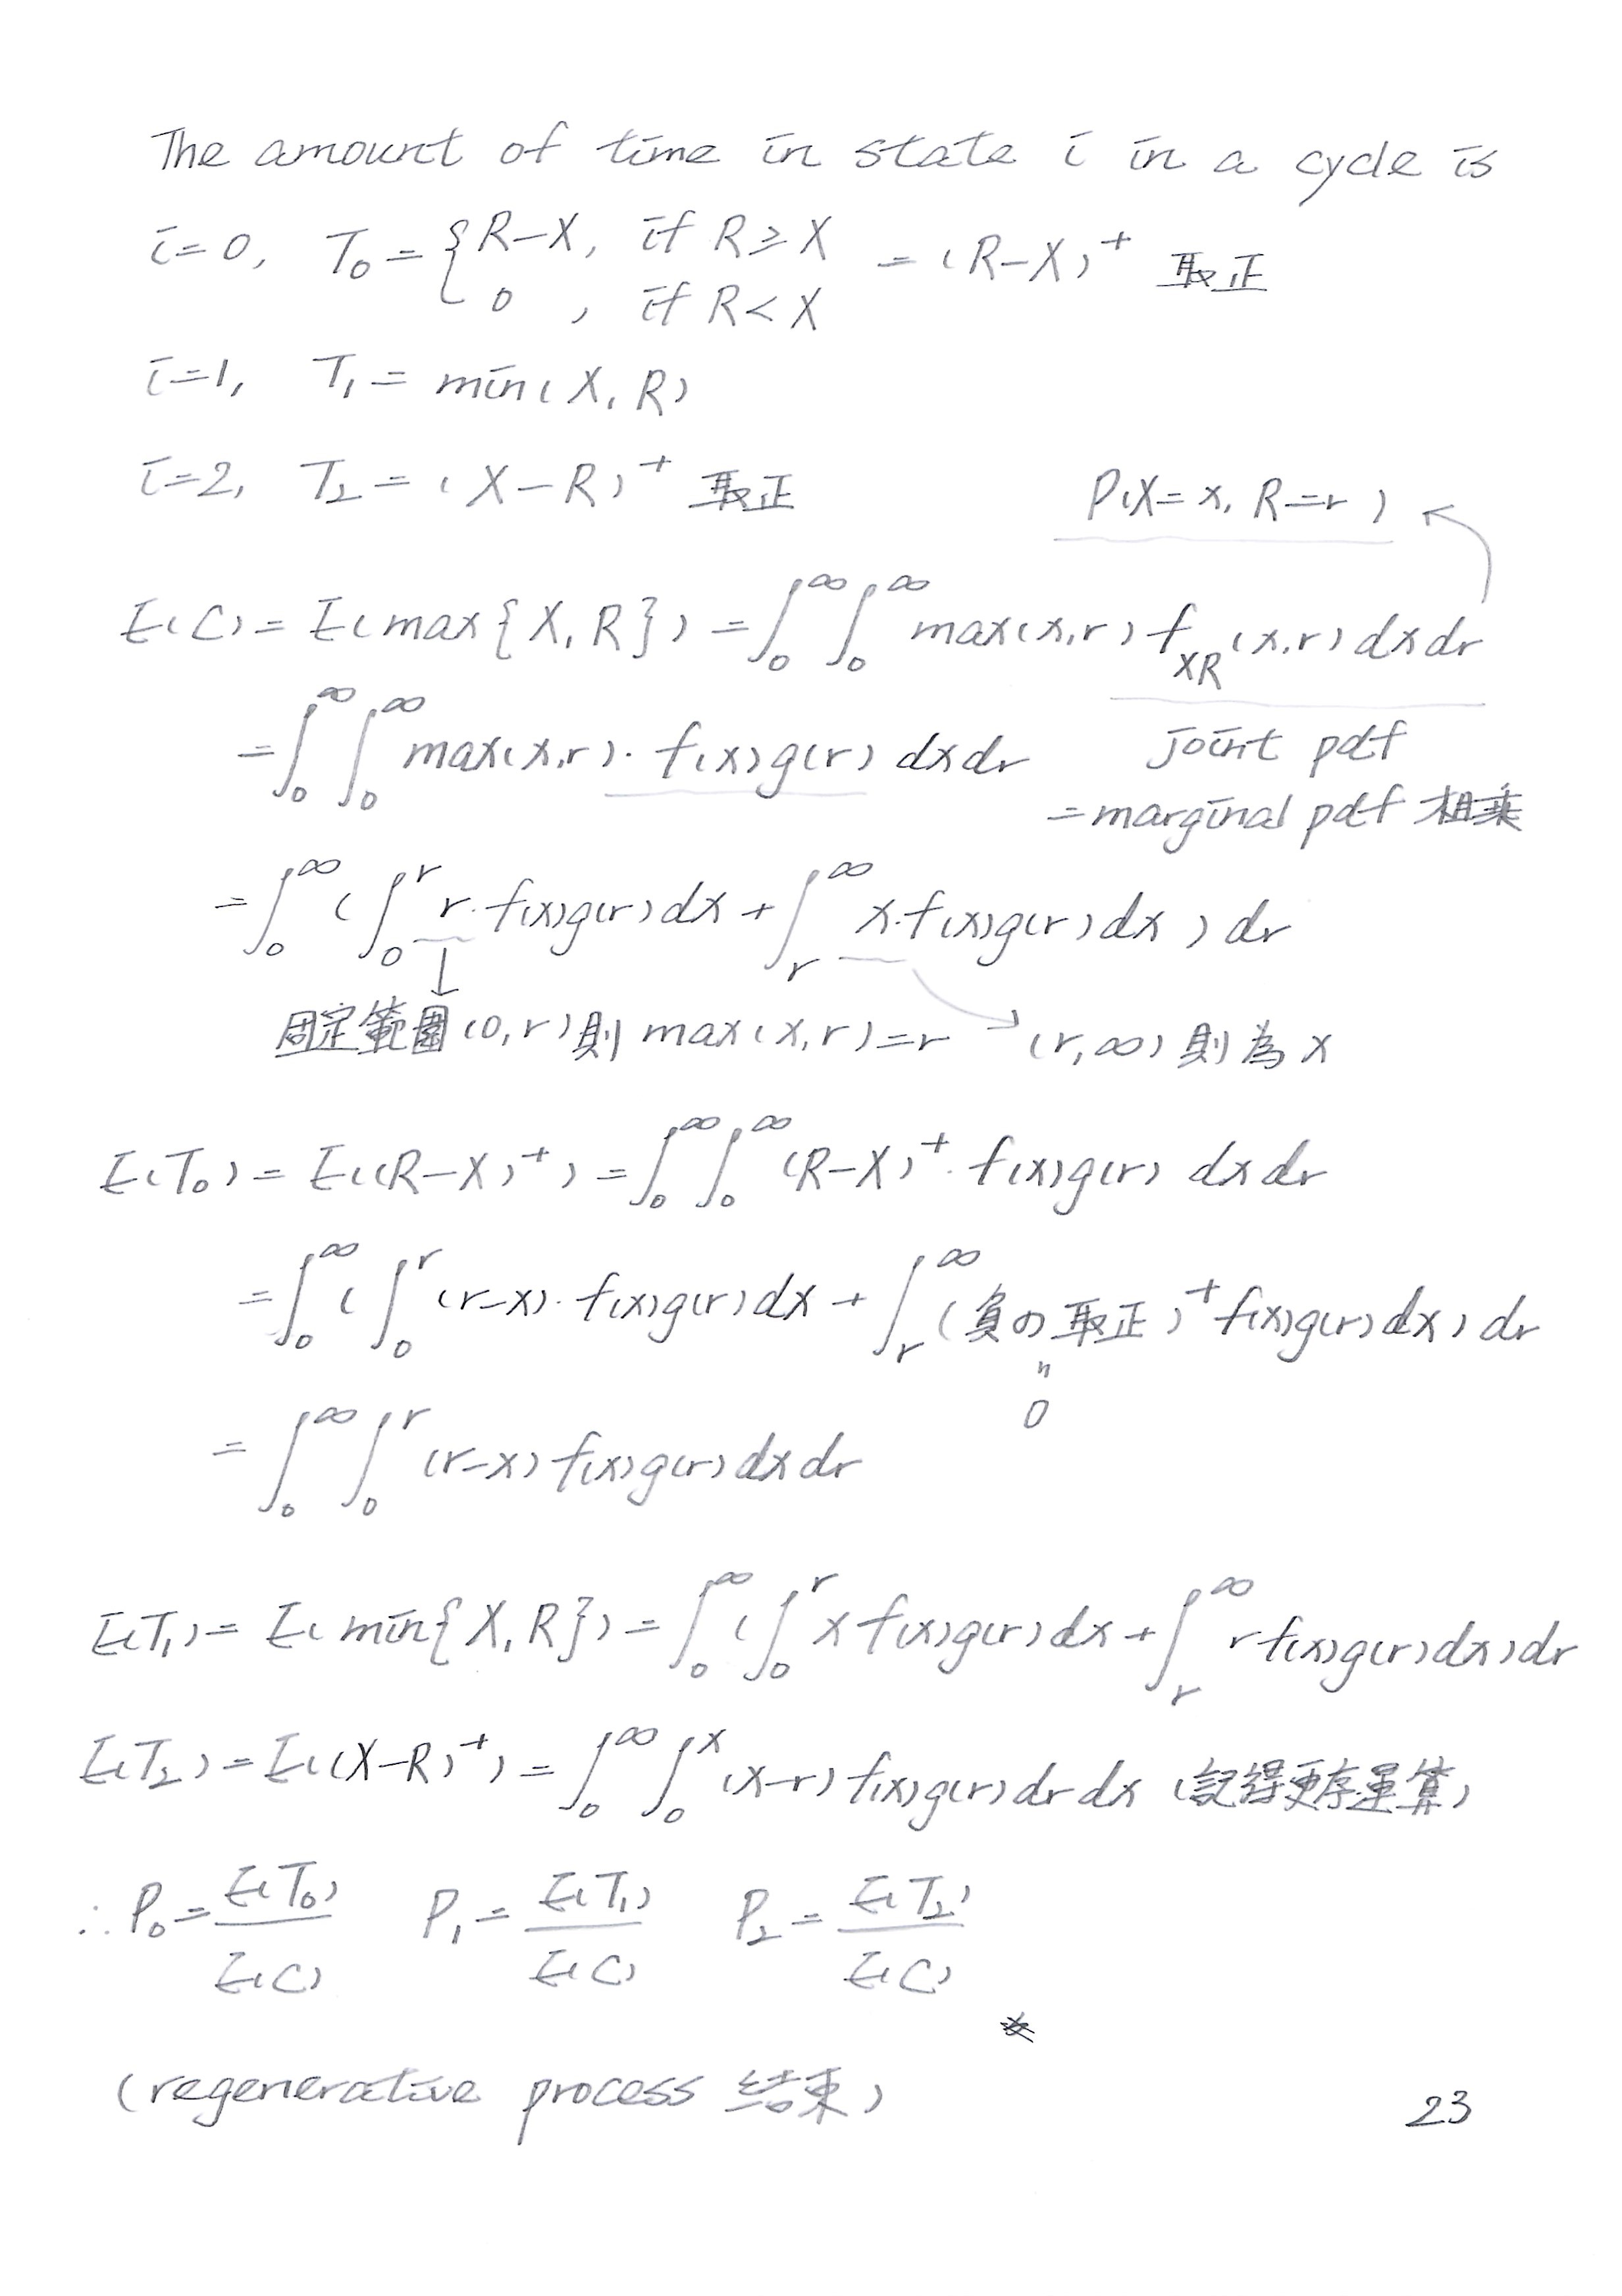 The amount of time in state i in a cycle is
i=0, T₀ = { R-X, if R ≥ X = (R-X)⁺ 取正
0, if R < X
i=1, T₁ = min(X, R)
i=2, T₂ = (X-R)⁺ 取正
P(X=x, R=r)
E(C) = E(max{X, R}) = ∫₀^∞ ∫₀^∞ max(x,r) f_XR(x,r) dx dr
= ∫₀^∞ ∫₀^∞ max(x,r)· f(x)g(r) dx dr joint pdf
= marginal pdf 相乘
= ∫₀^∞ (∫₀^r r·f(x)g(r)dx + ∫_r^∞ x·f(x)g(r)dx) dr
固定範圍(0,r)則 max(x,r)=r (r,∞)則為x
E(T₀) = E((R-X)⁺) = ∫₀^∞ ∫₀^∞ (R-X)⁺· f(x)g(r) dx dr
= ∫₀^∞ (∫₀^r (r-x)· f(x)g(r)dx + ∫_r^∞ (負の取正)⁺ f(x)g(r)dx) dr
"
0
= ∫₀^∞ ∫₀^r (r-x) f(x)g(r) dx dr
E(T₁) = E(min{X, R}) = ∫₀^∞ (∫₀^r x f(x)g(r)dx + ∫_r^∞ r f(x)g(r)dx) dr
E(T₂) = E((X-R)⁺) = ∫₀^∞ ∫₀^x (x-r) f(x)g(r) dr dx (記得更序運算)
∴ P₀ = E(T₀)/E(C) P₁ = E(T₁)/E(C) P₂ = E(T₂)/E(C)
※
(regenerative process 結束)
23